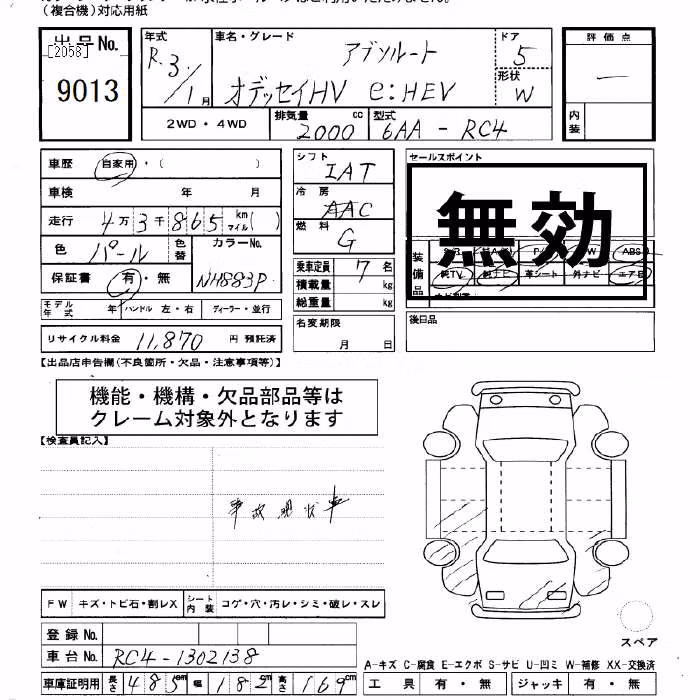 （複合機）対応用紙
出品No. 年式 車名・グレード アブソルート ドア 5 評価点
[2058] R. 3/1月 オデッセイHV e:HEV 形状 W 一
9013 内装
2WD・4WD 排気量 2000 cc 型式 6AA-RC4
車歴 自家用・（ ） シフト IAT セールスポイント
車検 年 月 冷房 AAC
走行 4万3千865 km マイル( ) 燃料 G 無効
色 パール 色替 カラーNo. 乗車定員 7 名 装備品 ABS
保証書 有・無 NH883P 積載量 kg 純TV 純ナビ 革シート 外ナビ エアB
総重量 kg
モデル年式 年 ハンドル 左・右 ディーラー・並行 名変期限 後日品
リサイクル料金 11,870 円 預託済 月 日
【出品店申告欄(不良箇所・欠品・注意事項等)】
機能・機構・欠品部品等は
クレーム対象外となります
【検査員記入】
事故現状車
FW キズ・トビ石・割レX シート内装 コゲ・穴・汚レ・シミ・破レ・スレ
登録No. スペア
車台No. RC4-1302138
A-キズ C-腐食 E-エクボ S-サビ U-凹ミ W-補修 XX-交換済
車庫証明用 長さ 485cm 幅 182cm 高さ 169cm 工具 有・無 ジャッキ 有・無